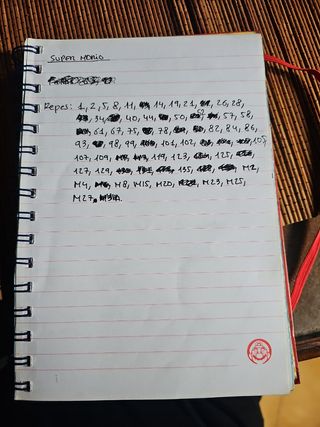 SUPER MARIO
Repes: 1, 2, 5, 8, 11, 14, 19, 21, 26, 28,
34, 40, 44, 50, 52, 57, 58,
61, 67, 75, 78, 82, 84, 86,
93, 98, 99, 101, 102, 105,
107, 109, 119, 123, 125,
127, 129, 135, M2,
M4, M8, M15, M20, M23, M25,
M27